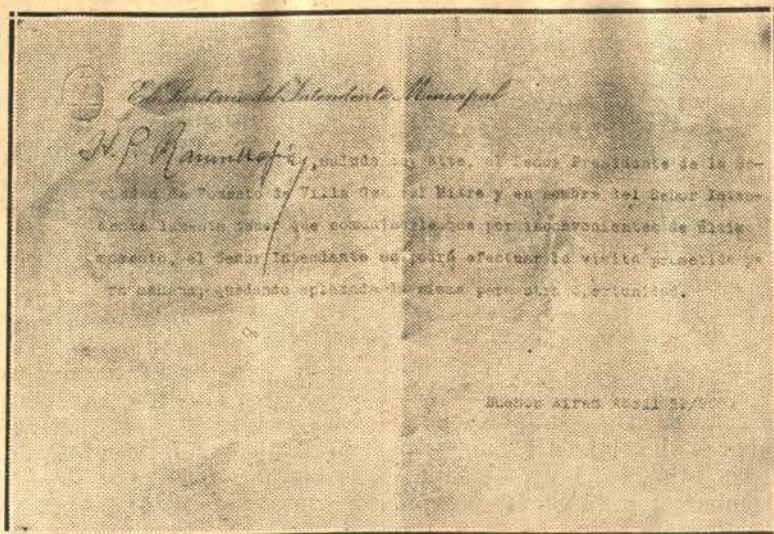 El Secretario del Intendente Municipal
H. P.
saluda muy atte. al Señor Presidente de la So-
ciedad de Fomento de Villa General Mitre y en nombre del Señor Inten-
dente lamenta tener que comunicarle que por inconvenientes de último
momento, el Señor Intendente no podrá efectuar la visita prometida pa-
ra mañana, quedando aplazada la misma para otra oportunidad.
Buenos Aires Abril